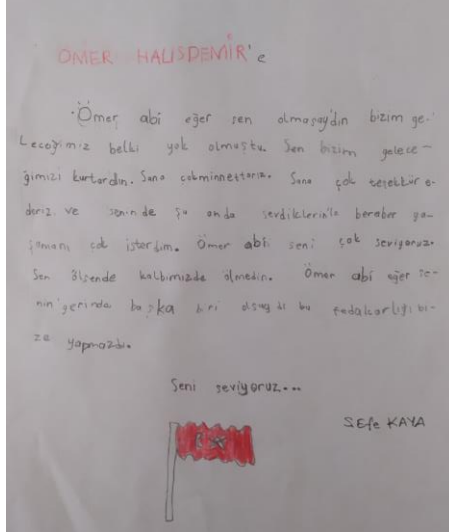 ÖMER HALİSDEMİR'e
Ömer abi eğer sen olmasaydın bizim ge-
leceğimiz belki yok olmuştu. Sen bizim gelece-
ğimizi kurtardın. Sana çokminnettarız. Sana çok teşekkür e-
deriz ve seninde şu anda sevdiklerin'le beraber ya-
şamanı çok isterdim. Ömer abi seni çok seviyoruz.
Sen ölsende kalbimizde ölmedin. Ömer abi eğer se-
nin yerinde başka biri olsaydı bu fedakarlığı bi-
ze yapmazdı.
Seni seviyoruz...
SEfe KAYA